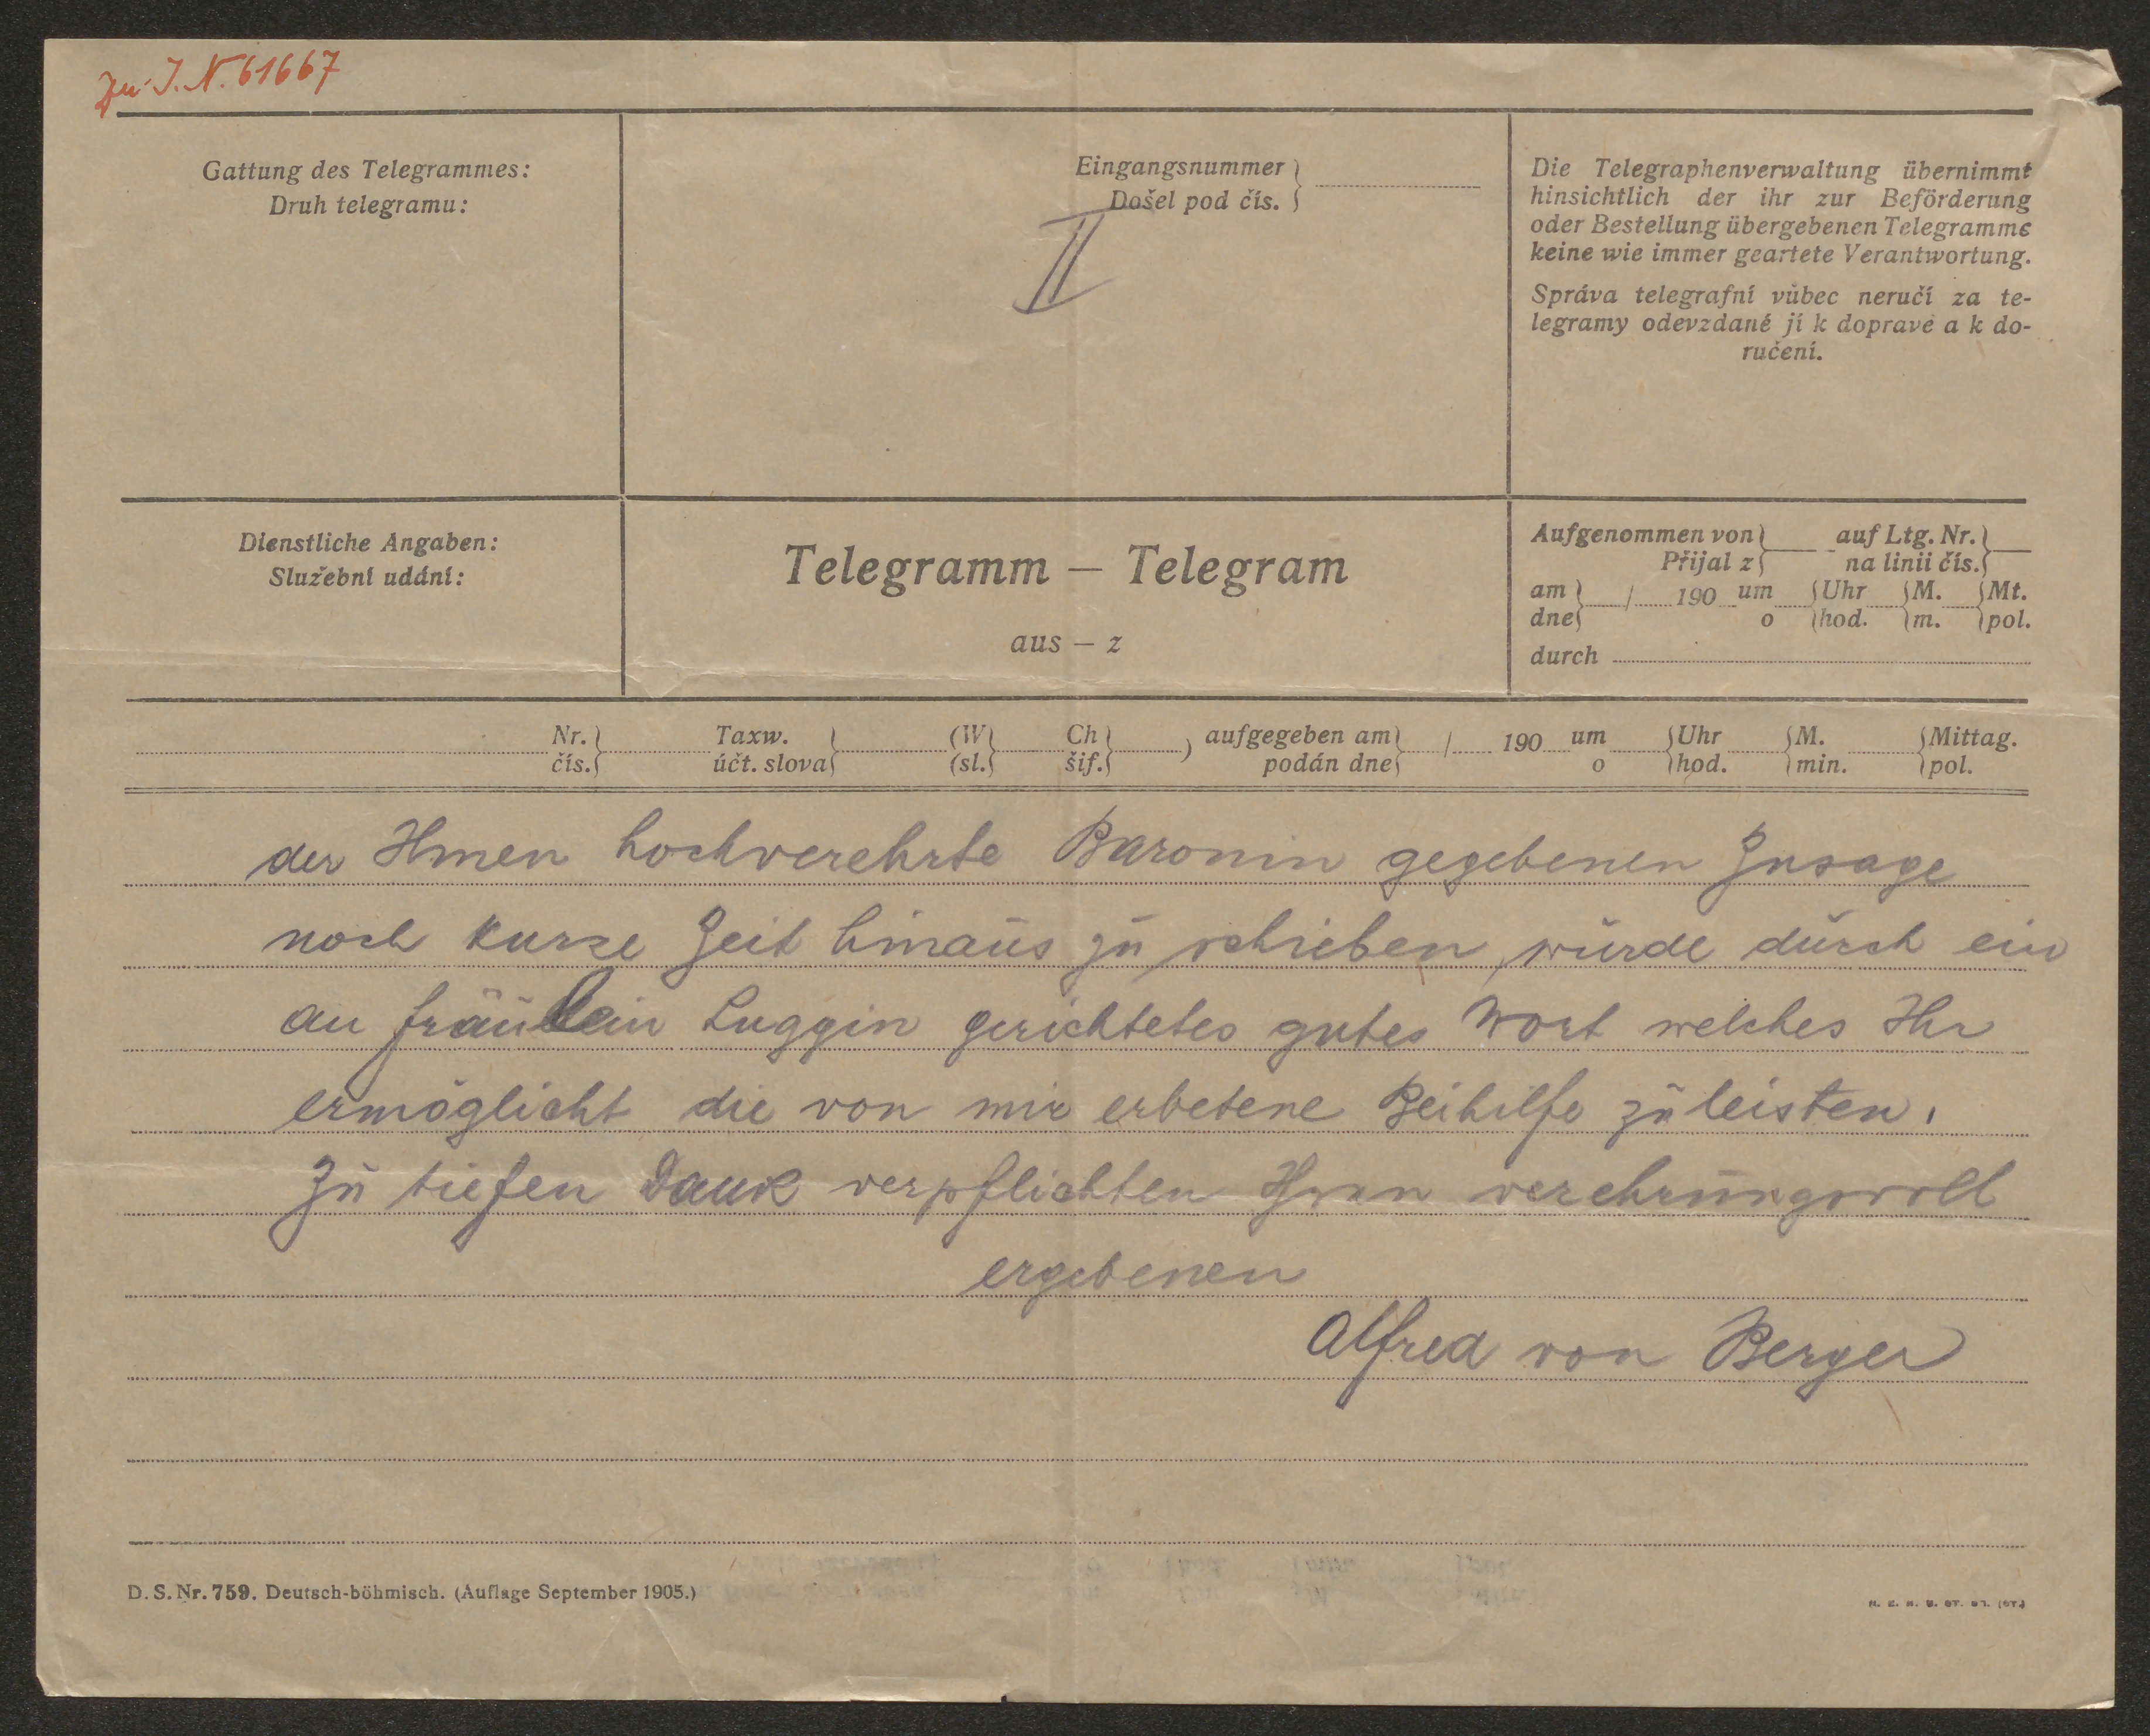 Zu I.N. 61667
Gattung des Telegrammes:
Druh telegramu:
Eingangsnummer
Došel pod čís.
II
Die Telegraphenverwaltung übernimmt
hinsichtlich der ihr zur Beförderung
oder Bestellung übergebenen Telegramme
keine wie immer geartete Verantwortung.
Správa telegrafní vůbec neručí za te-
legramy odevzdané jí k dopravě a k do-
ručení.
Dienstliche Angaben:
Služební udání:
Telegramm – Telegram
aus – z
Aufgenommen von auf Ltg. Nr.
Přijal z na linii čís.
am / 190 um Uhr M. Mt.
dne o hod. m. pol.
durch
Nr. Taxw. (W Ch ) aufgegeben am / 190 um Uhr M. Mittag.
čís. účt. slova (sl. šif. podán dne o hod. min. pol.
der Ihnen hochverehrte Baronin gegebenen Zusage
noch kurze Zeit hinaus zu schieben, würde durch ein
an fräulein Luggin gerichtetes gutes Wort welches Ihr
ermöglicht die von mir erbetene Beihilfe zu leisten,
Zu tiefen Dank verpflichten Ihren verehrungsvoll
ergebenen
Alfred von Berger
D. S. Nr. 759. Deutsch-böhmisch. (Auflage September 1905.)